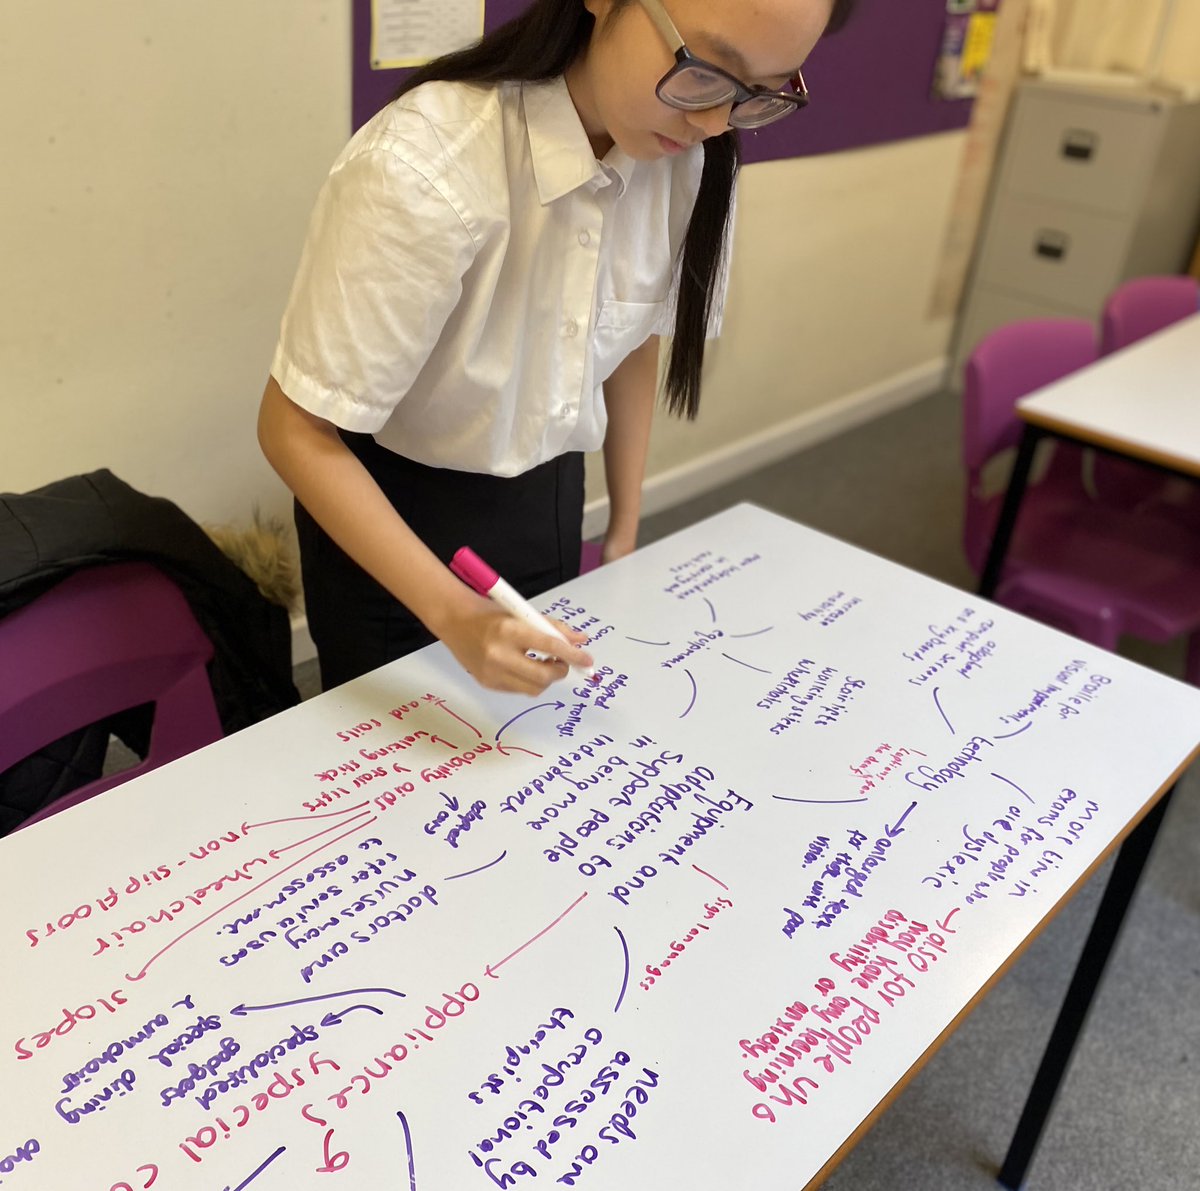 Equipment and
adaptations to
support people
in being more
independent
equipment
more independent
in carrying out
routines
increase
mobility
Stairlift
walking sticks
wheelchairs
technology
adapted
computer screens
and keyboards
Braille for
visual impairments
more time in
exams for people who
are dyslexic
also for people who
may have any learning
disability or
anxiety.
enlarged text
for those with poor
vision.
Sign languages
needs are
assessed by
occupational
therapists
appliances
specialised
gadgets
special dining
& armchair
special
doctors and
nurses may
refer service users
to assessment.
mobility aids
adapted
cars
adapted
shopping trolley.
hand rails
walking stick
stair lifts
non-slip floors
wheelchair
slopes